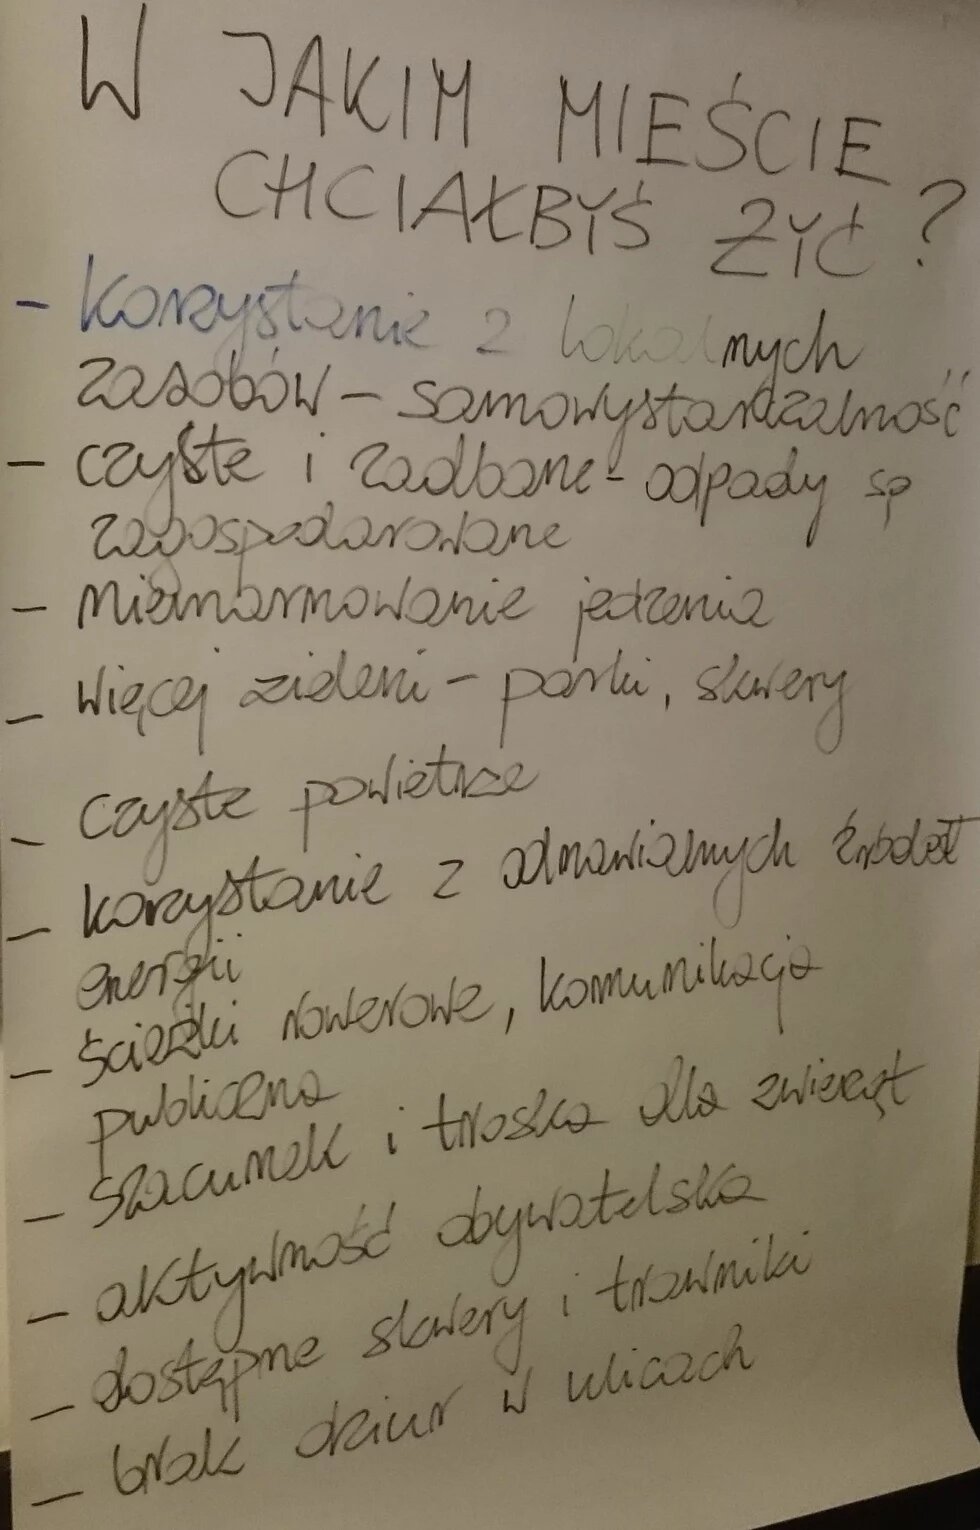 W JAKIM MIEŚCIE
CHCIAŁBYŚ ŻYĆ?
- korzystanie z lokalnych
zasobów - samowystarczalność
- czyste i zadbane - odpady są
zagospodarowane
- niemarnowanie jedzenia
- więcej zieleni - parki, skwery
- czyste powietrze
- korzystanie z odnawialnych źródeł
energii
- ścieżki rowerowe, komunikacja
publiczna
- szacunek i troska dla zwierząt
- aktywność obywatelska
- dostępne skwery i trawniki
- brak dziur w ulicach